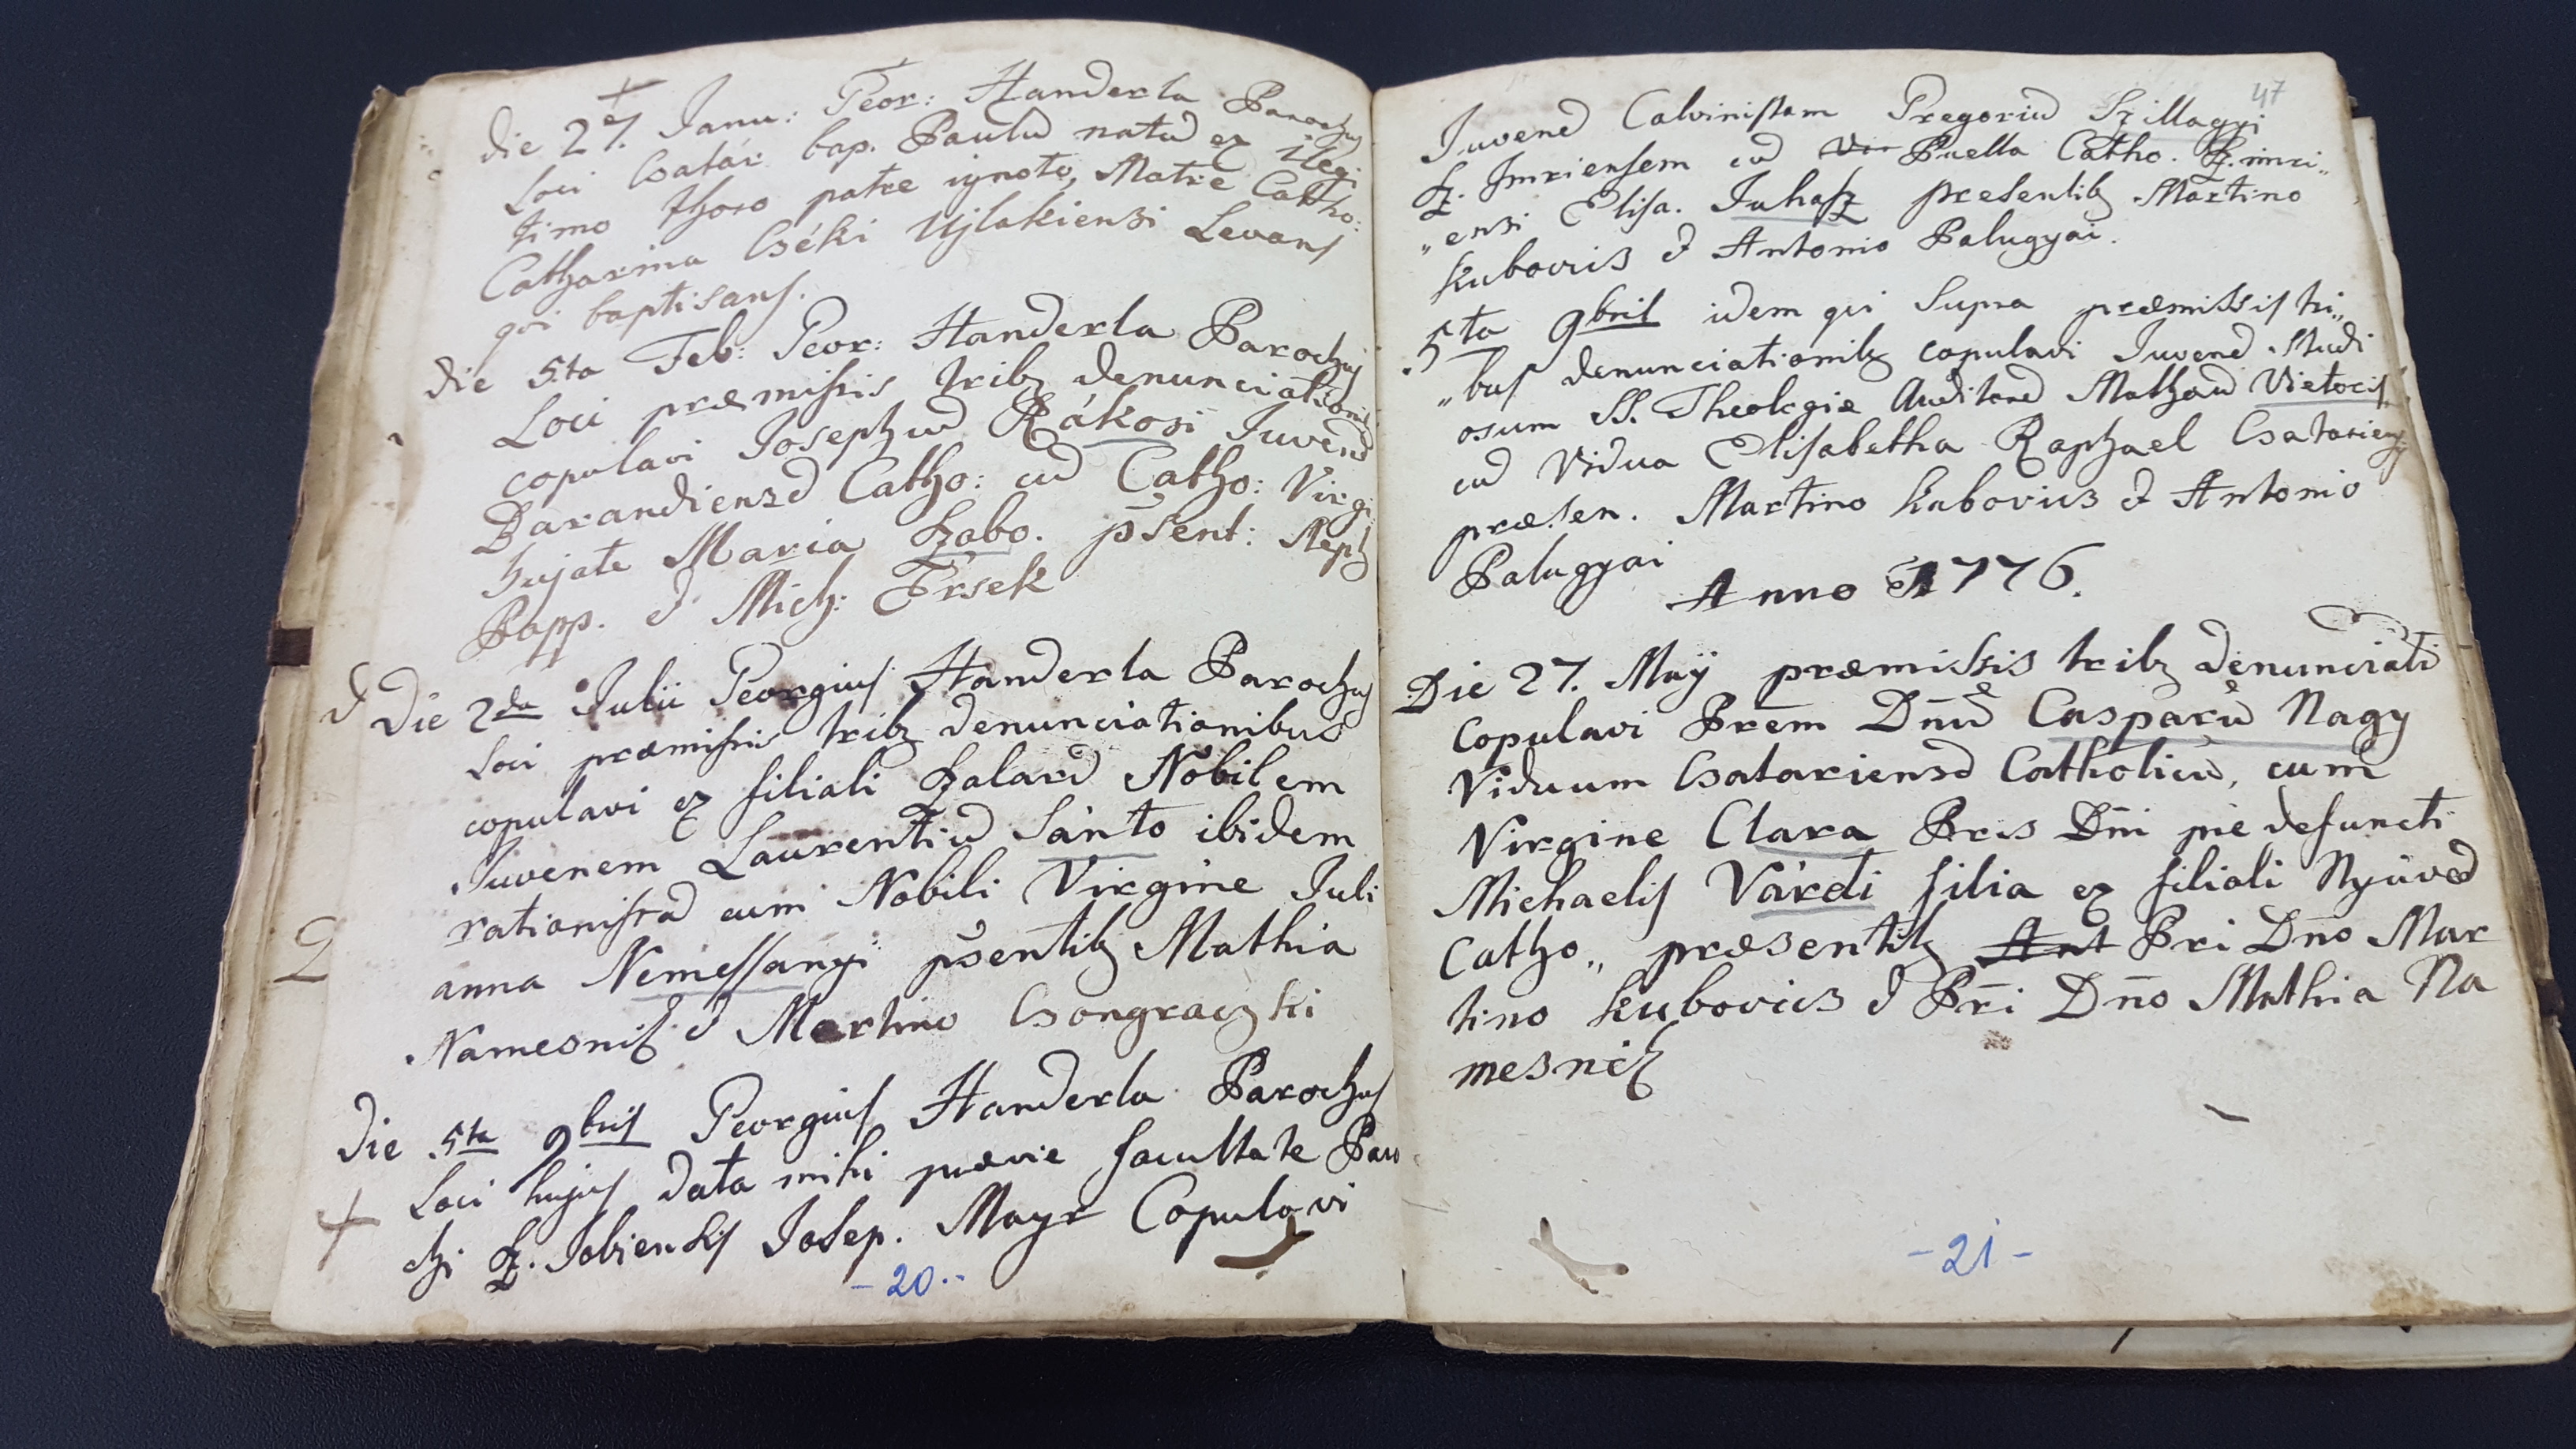 Die 27. Janu: Geor: Handerla Parochus
Loci Csatár bap. Paulū natū ex illegi
timo thoro patre ignoto, Matre Catho:
Catharina Cséki Ujlakiensi Levans
qui baptisans.
Die 5ta Feb: Geor: Handerla Parochus
Loci præmissis tribȝ denunciationi
copulavi Josephum Rákosi Juvenē
Barandiensē Catho: cū Catho: Virgi
hujate Maria Szabo. pšent: Steph
Papp. & Mich: Érsek
& Die 2da Julii Georgius Handerla Parochus
Loci præmissis tribȝ denunciationibus
copulavi ex filiali Szalard Nobilem
Juvenem Laurentiū Sánto ibidem
rationistā cum Nobili Virgine Juli
anna Nemessanyi pšentibȝ Mathia
Namesnik & Martino Csongraczki
Die 5ta 9bris Georgius Handerla Parochus
Loci hujus data mihi prævie facultate Paro
chi Sz. Jobiensis Josep. Mayr Copulavi
-20-
47
Juvenē Calvinistam Gregoriū Szillagyi
Sz. Imriensem cū Vir Puella Catho. Sz. imri„
„ensi Elisa. Juhasz presentibȝ Martino
Kubovics & Antonio Palugyai.
5ta 9bris idem qui supra præmissis tri„
„bus denunciationibȝ copulavi Juvenē Studi
osum SS. Theologiæ Auditorē Mathæū Vietoris
cū Vidua Elisabetha Raphael Csatariensi
præsen. Martino Kubovics & Antonio
Palugyai
Anno 1776.
Die 27. Maÿ præmissis tribȝ denunciati
copulavi Prēm Dn̄ū Casparū Nagy
Viduum Csatariensē Catholicū, cum
Virgine Clara Pris Dn̄i pie defuncti
Michaelis Várdi filia ex filiali Nyüved
Catho„ præsentibȝ Ant Pri Dn̄o Mar
tino Kubovics & Pr̄i Dn̄o Mathia Na
mesnik
-21-